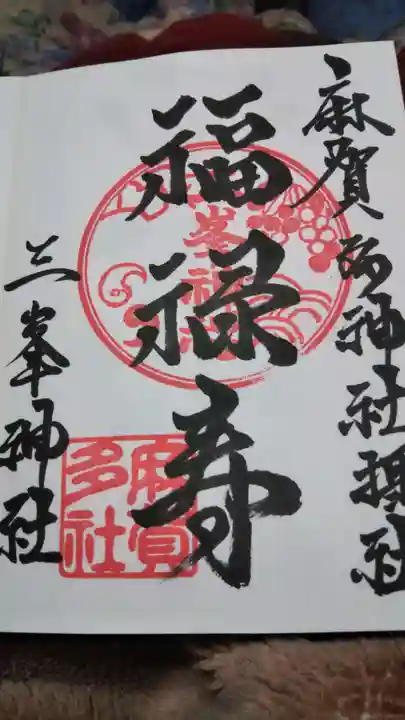 麻賀多神社摂社
福禄寿
三峯神社
麻賀多社